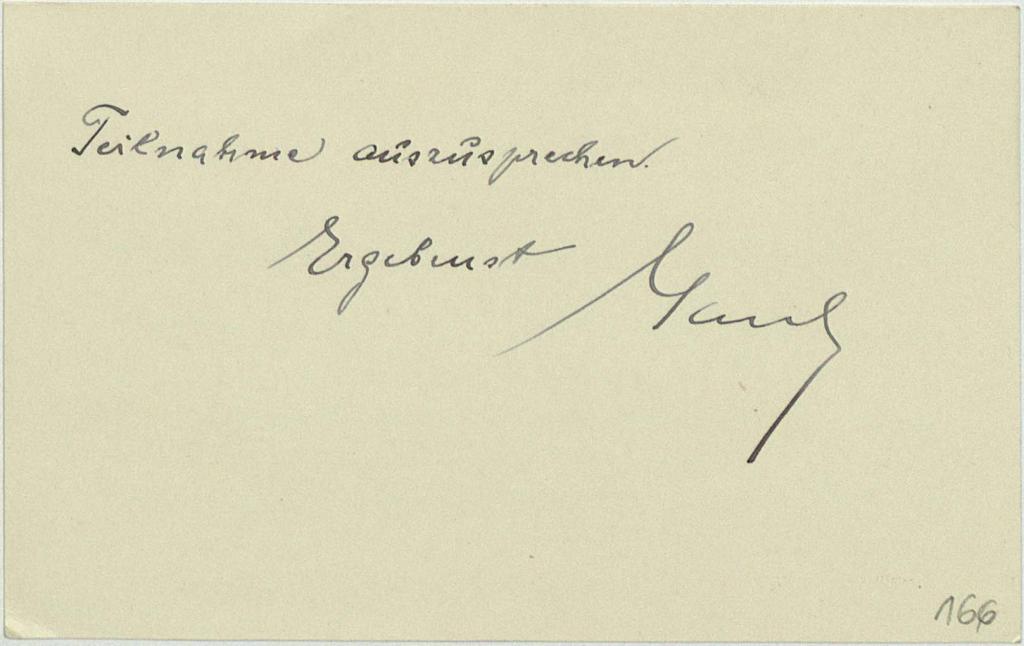 Teilnahme auszusprechen.
Ergebenst
166